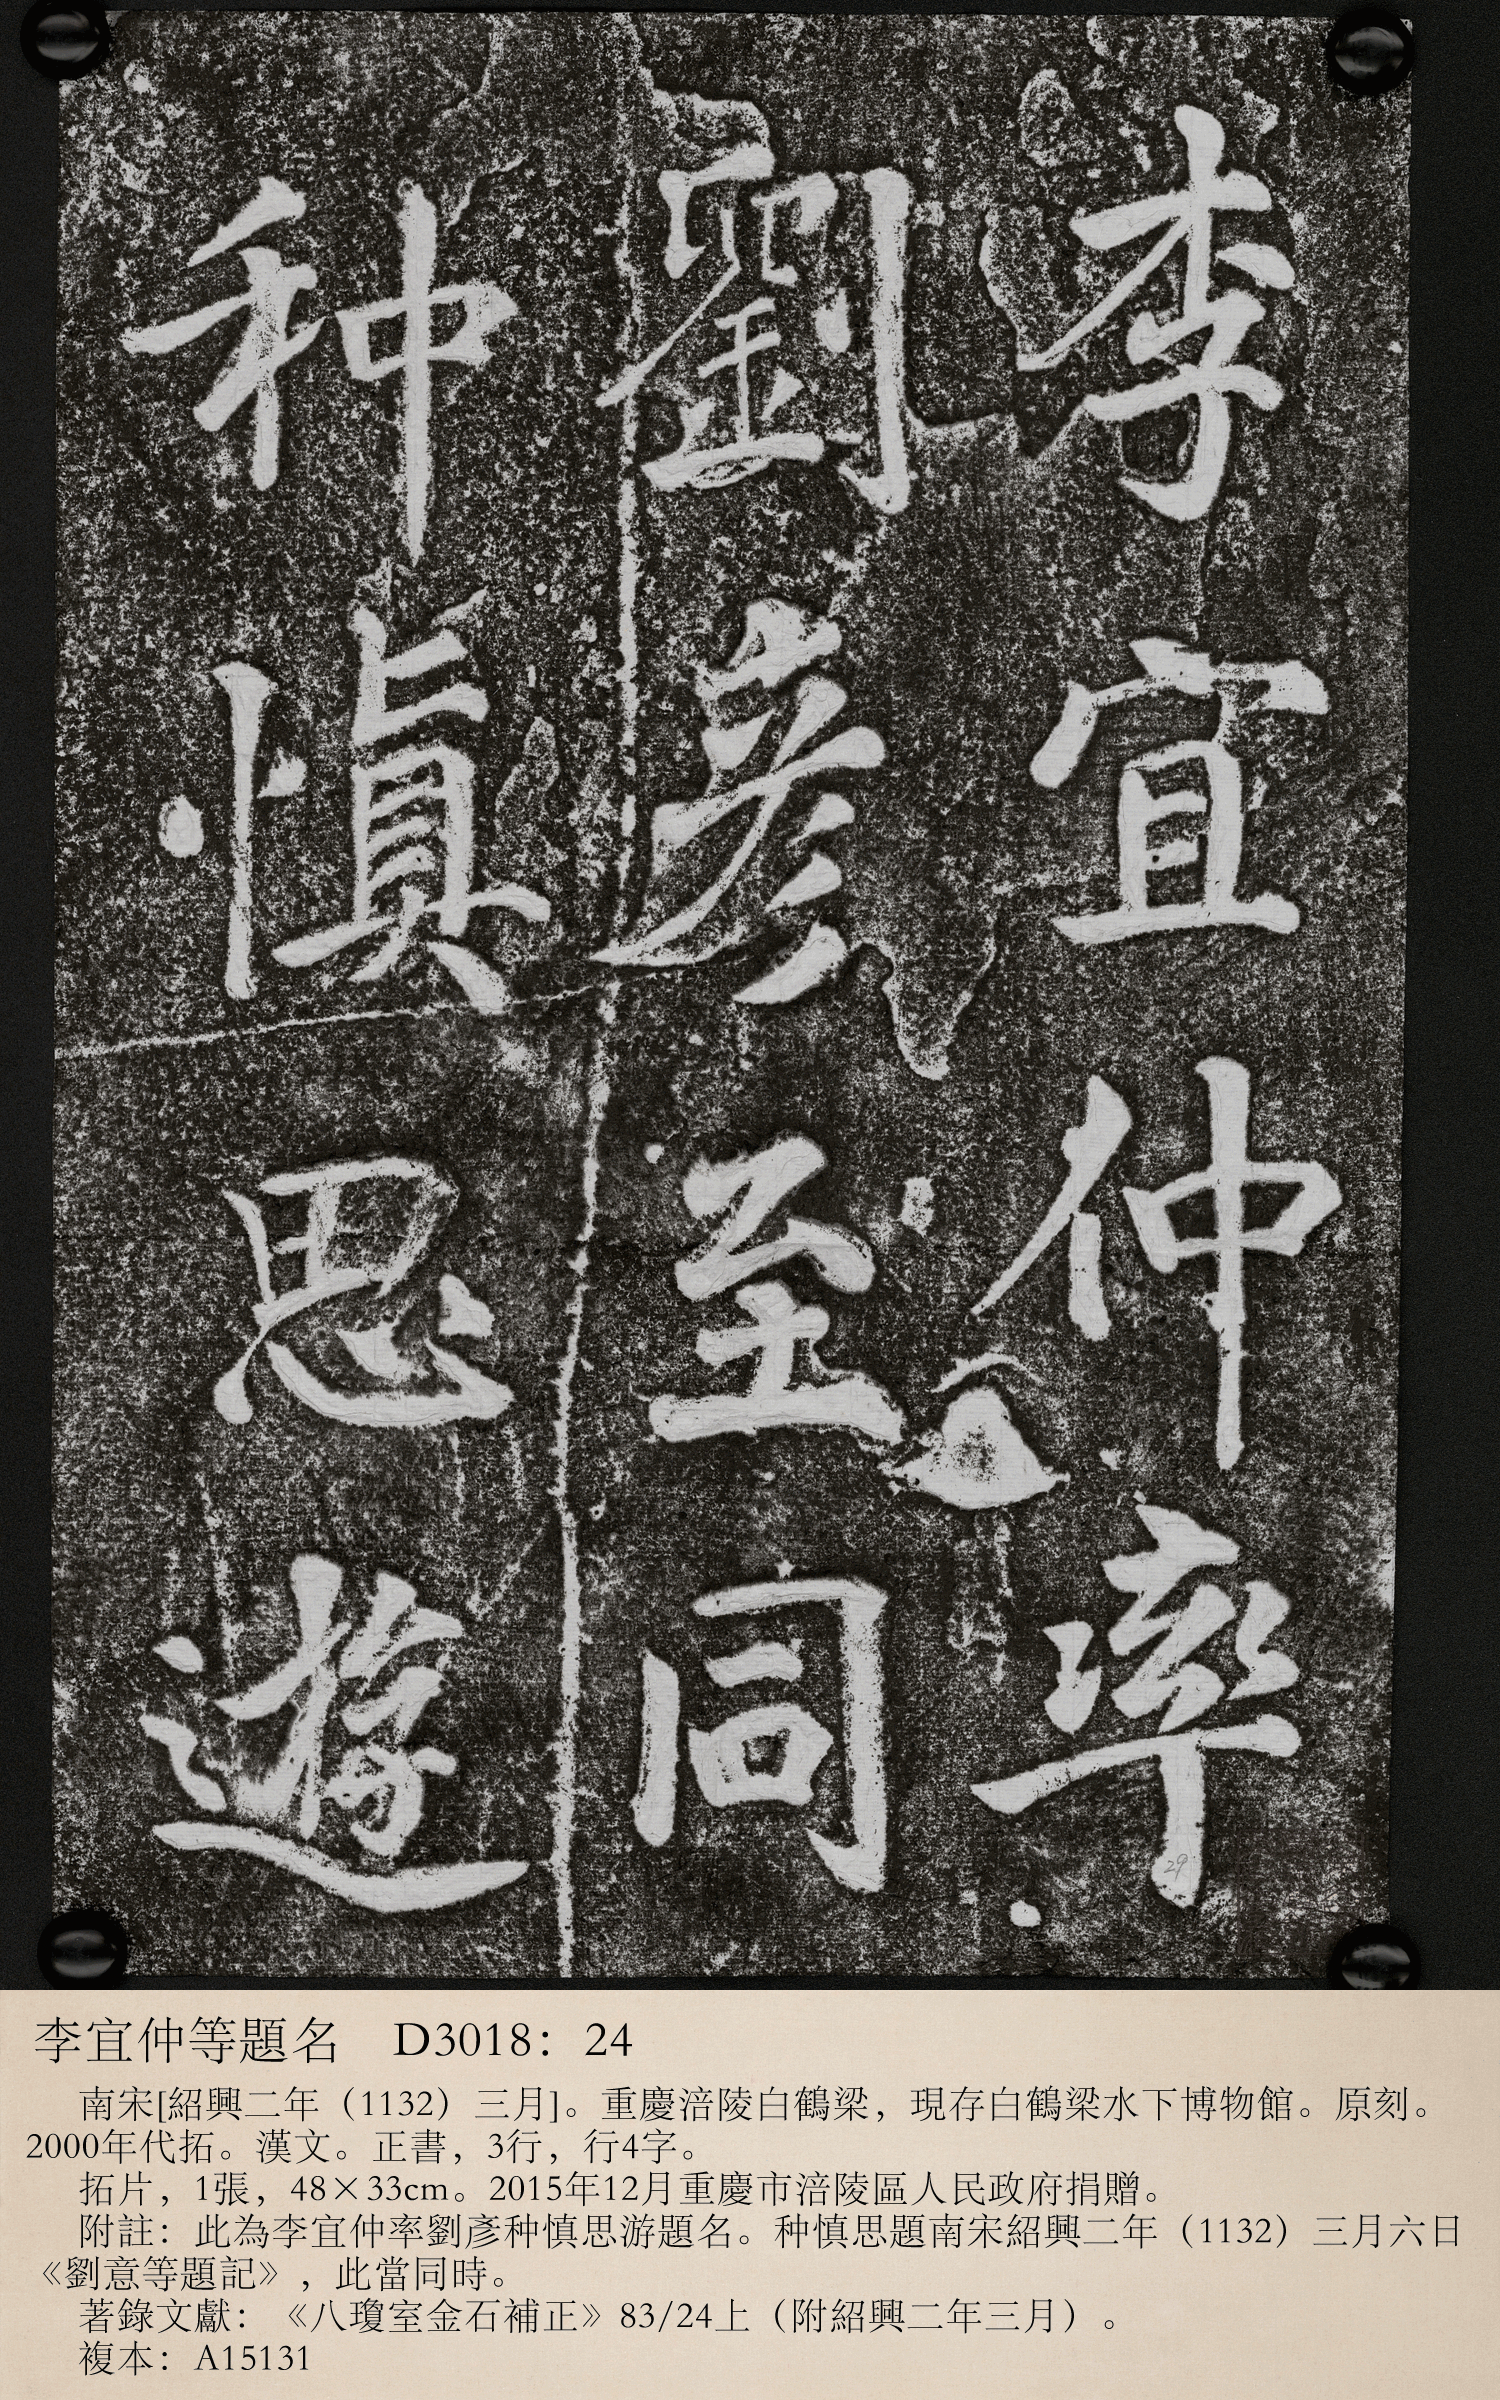 李宜仲率
劉彥至同
种慎思遊
29
李宜仲等題名　D3018：24
南宋[紹興二年（1132）三月]。重慶涪陵白鶴梁，現存白鶴梁水下博物館。原刻。
2000年代拓。漢文。正書，3行，行4字。
拓片，1張，48×33cm。2015年12月重慶市涪陵區人民政府捐贈。
附註：此為李宜仲率劉彥种慎思游題名。种慎思題南宋紹興二年（1132）三月六日
《劉意等題記》，此當同時。
著錄文獻：《八瓊室金石補正》83/24上（附紹興二年三月）。
複本：A15131